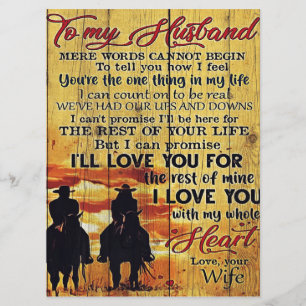 To my Husband
MERE WORDS CANNOT BEGIN
To tell you how I feel
You're the one thing in my life
I can count on to be real
WE'VE HAD OUR UFS AND DOWNS
I can't promise I'll be here for
THE REST OF YOUR LIFE
But I can promise
I'LL LOVE YOU FOR
the rest of mine
I LOVE YOU
with my whole
Heart
Love, your
Wife